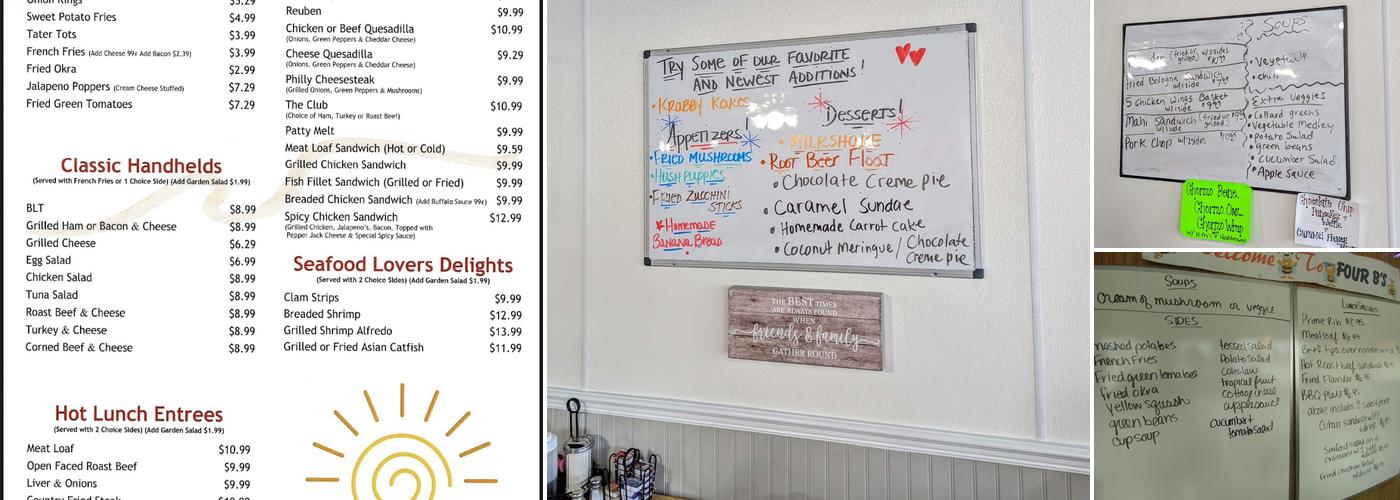 Onion Rings $5.29
Sweet Potato Fries $4.99
Tater Tots $3.99
French Fries (Add Cheese 99¢ Add Bacon $2.39) $3.99
Fried Okra $2.99
Jalapeno Poppers (Cream Cheese Stuffed) $7.29
Fried Green Tomatoes $7.29
Classic Handhelds
(Served with French Fries or 1 Choice Side) (Add Garden Salad $1.99)
BLT $8.99
Grilled Ham or Bacon & Cheese $8.99
Grilled Cheese $6.29
Egg Salad $6.99
Chicken Salad $8.99
Tuna Salad $8.99
Roast Beef & Cheese $8.99
Turkey & Cheese $8.99
Corned Beef & Cheese $8.99
Hot Lunch Entrees
(Served with 2 Choice Sides) (Add Garden Salad $1.99)
Meat Loaf $10.99
Open Faced Roast Beef $9.99
Liver & Onions $9.99
Country Fried Steak
Reuben $9.99
Chicken or Beef Quesadilla $10.99
(Onions, Green Peppers & Cheddar Cheese)
Cheese Quesadilla $9.29
(Onions, Green Peppers & Cheddar Cheese)
Philly Cheesesteak $9.99
(Grilled Onions, Green Peppers & Mushrooms)
The Club $10.99
(Choice of Ham, Turkey or Roast Beef)
Patty Melt $9.99
Meat Loaf Sandwich (Hot or Cold) $9.59
Grilled Chicken Sandwich $9.99
Fish Fillet Sandwich (Grilled or Fried) $9.99
Breaded Chicken Sandwich (Add Buffalo Sauce 99¢) $9.99
Spicy Chicken Sandwich $12.99
(Grilled Chicken, Jalapeno's, Bacon, Topped with
Pepper Jack Cheese & Special Spicy Sauce)
Seafood Lovers Delights
(Served with 2 Choice Sides) (Add Garden Salad $1.99)
Clam Strips $9.99
Breaded Shrimp $12.99
Grilled Shrimp Alfredo $13.99
Grilled or Fried Asian Catfish $11.99
TRY SOME OF OUR FAVORITE
AND NEWEST ADDITIONS!
• KRABBY KAKES
APPETIZERS!
• FRIED MUSHROOMS
• HUSH PUPPIES
• FRIED ZUCCHINI
STICKS
* HOMEMADE
BANANA BREAD
DESSERTS!
• MILKSHAKE
• ROOT BEER FLOAT
• Chocolate Creme pie
• Caramel Sundae
• Homemade Carrot Cake
• Coconut meringue / Chocolate
Creme pie
THE BEST TIMES
ARE ALWAYS FOUND
WHEN
friends & family
GATHER ROUND
(fried or grilled) w/2 sides
fried Bologna Sandwich
w/1 side
5 chicken wings Basket
w/1 side
Mahi Sandwich (fried or grilled)
w/1 side
Pork Chop w/2 sides
Soups
• Vegetable
• chili
Extra Veggies
• Collard greens
• Vegetable Medley
• Potato Salad
• green beans
• Cucumber Salad
• Apple Sauce
Chorizo
Chorizo
Chorizo Wrap
Chocolate Chip
Pancakes
Waffle
Caramel
Welcome To FOUR B'S
Soups
Cream of mushroom or veggie
SIDES
mashed potatoes
French Fries
Fried green tomatoes
fried okra
yellow squash
green beans
cup soup
tossed salad
Potato salad
coleslaw
tropical fruit
cottage cheese
applesauce
cucumber
tomato salad
Lunch Specials
Prime Rib
Meatloaf
Beef tips over noodles
Hot Roast beef Sandwich
Fried Flounder
BBQ Plate
above includes 2 sides
Cuban sandwich
Seafood salad on a
croissant
Fried chicken salad